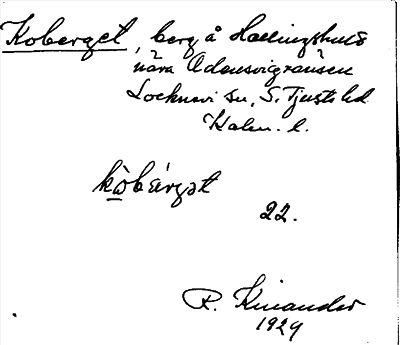 Koberget, berg å Hallingshults
nära Odensvigränsen
Locknevi sn, S. Tjusts hd
Kalm. l.
kòbärgət
22.
R. Kinander
1929